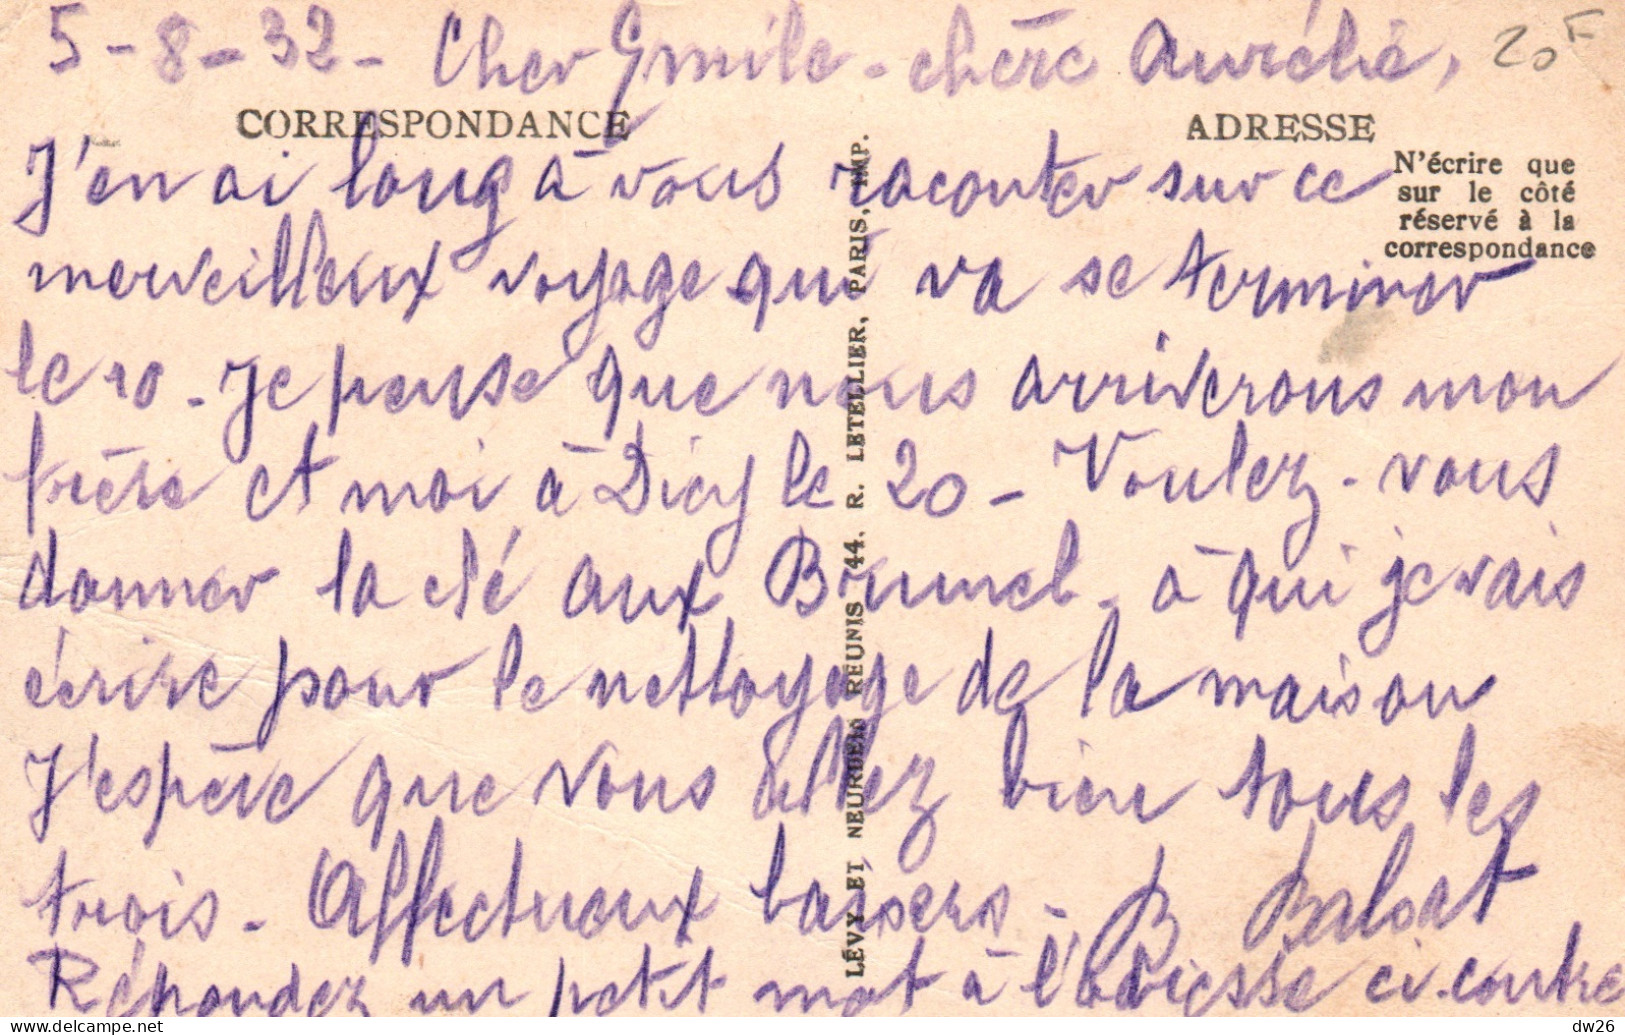 5-8-32- Cher Emile - chère Aurélie, 20F
CORRESPONDANCE
ADRESSE
N'écrire que
sur le côté
réservé à la
correspondance
J'en ai long à vous raconter sur ce
merveilleux voyage qui va se terminer
le 10. Je pense que nous arriverons mon
frère et moi à Dicy le 20 - Voulez-vous
donner la clé aux Brunel. à qui je vais
écrire pour le nettoyage de la maison
J'espère que vous allez bien tous les
trois. Affectueux baisers - B
Répondez un petit mot à l'adresse ci-contre
LÉVY ET NEURDEIN RÉUNIS 44. R. LETELLIER, PARIS, IMP.
dw26